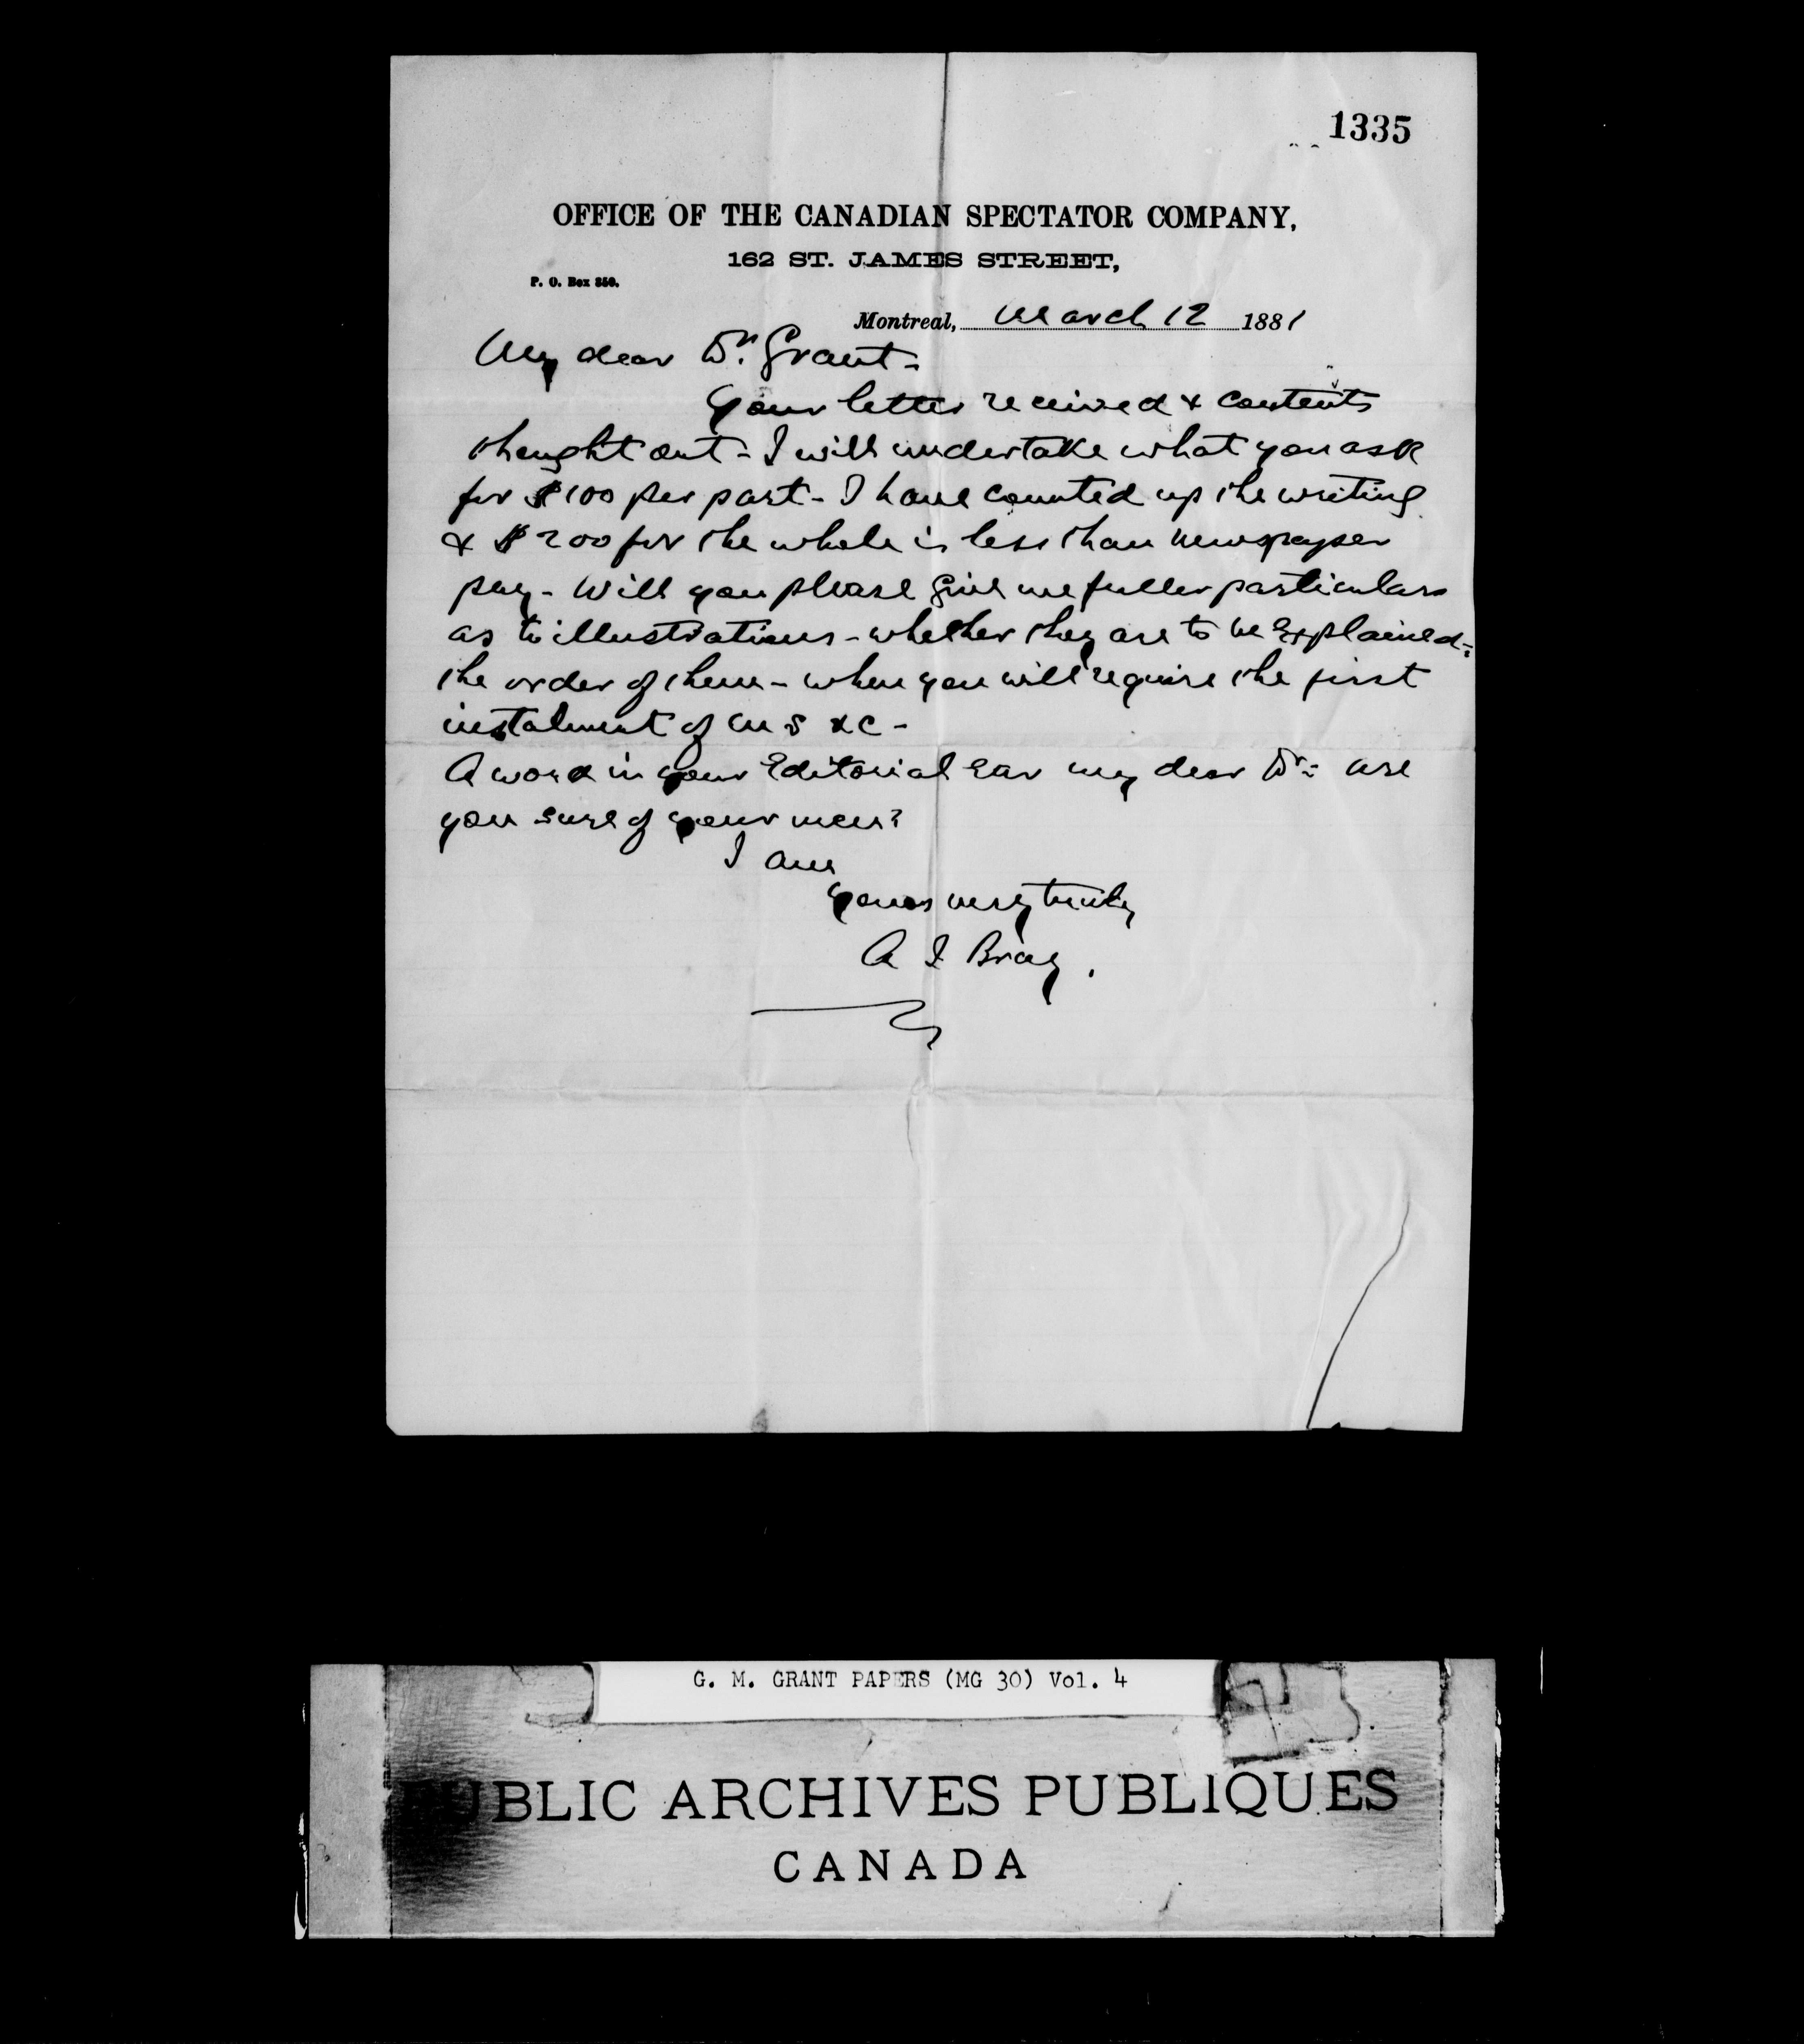 1335
OFFICE OF THE CANADIAN SPECTATOR COMPANY,
162 ST. JAMES STREET,
P. O. Box 350.
Montreal, March 12 1881
My dear Dr. Grant-
Your letter received & contents
thought out - I will undertake what you ask
for $100 per part - I have counted up the writing
& $200 for the whole is less than newspaper
pay - Will you please give me fuller particulars
as to illustrations - whether they are to be explained -
the order of them - when you will require the first
instalment of MS &c -
A word in your Editorial ear my dear Dr - are
you sure of your men?
I am
yours very truly
A J Bray.
G. M. GRANT PAPERS (MG 30) Vol. 4
PUBLIC ARCHIVES PUBLIQUES
CANADA